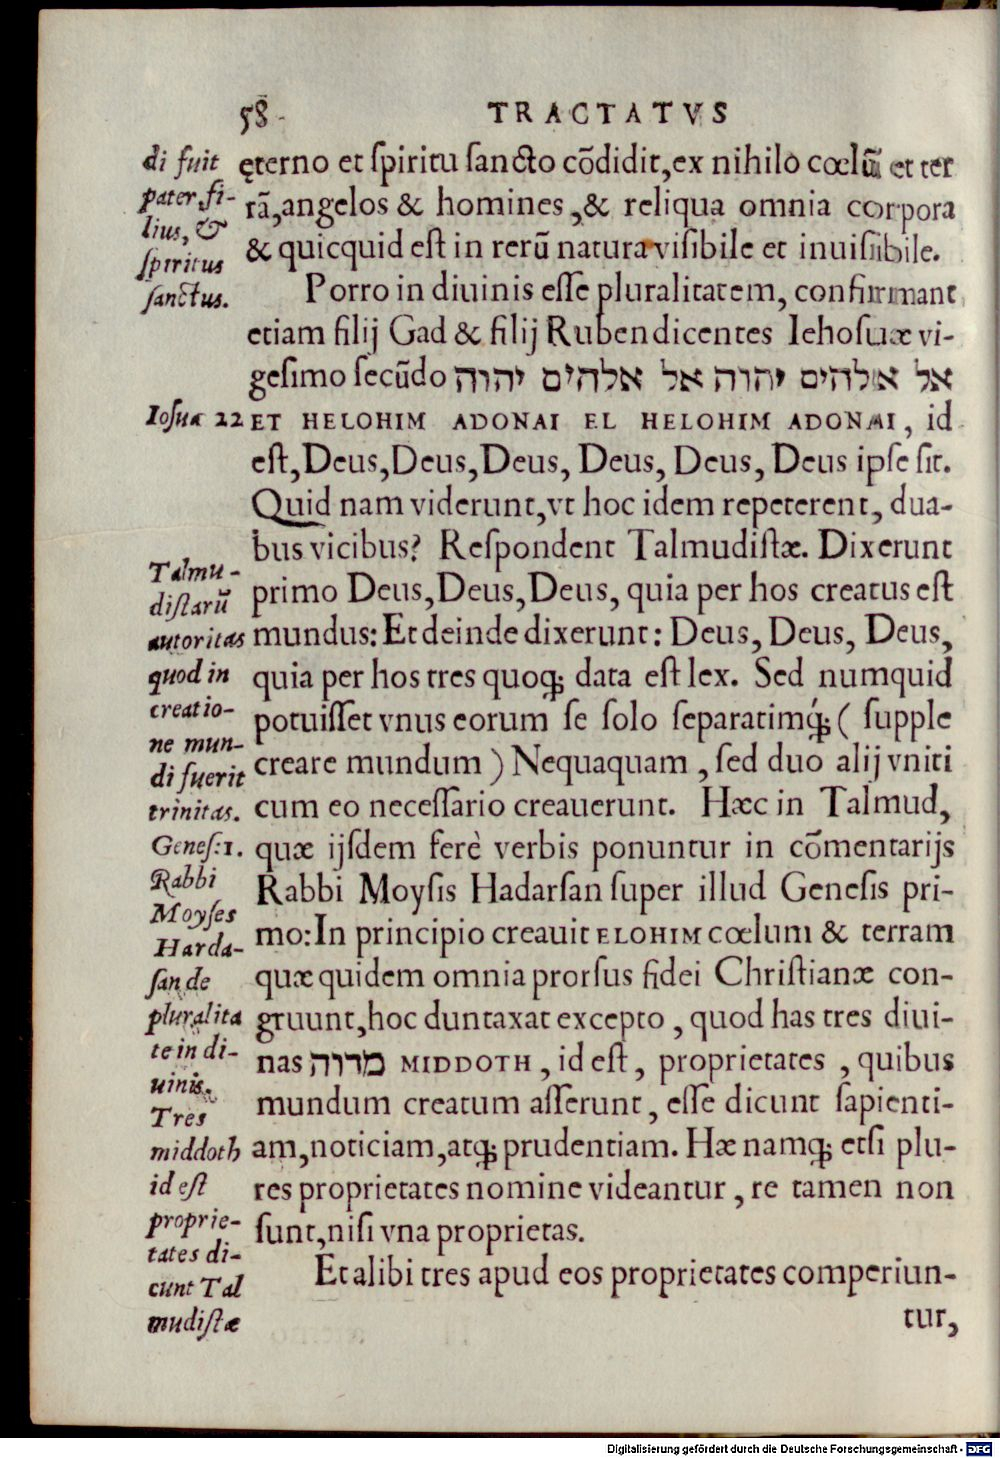 58 TRACTATVS
ęterno et ſpiritu ſancto cõdidit,ex nihilo cœlũ et ter
rã,angelos & homines ,& reliqua omnia corpora
& quicquid eſt in rerũ natura viſibile et inuiſibile.
Porro in diuinis eſſe pluralitatem, confirmant
etiam filij Gad & filij Ruben dicentes Iehoſuæ vi-
geſimo ſecũdo אל אלהים יהוה אל אלהים יהוה
ET HELOHIM ADONAI EL HELOHIM ADONAI, id
eſt,Deus,Deus,Deus, Deus, Deus, Deus ipſe ſit.
Quid nam viderunt,vt hoc idem repeterent, dua-
bus vicibus? Reſpondent Talmudiſtæ. Dixerunt
primo Deus,Deus,Deus, quia per hos creatus eſt
mundus: Et deinde dixerunt: Deus, Deus, Deus,
quia per hos tres quoq; data eſt lex. Sed numquid
potuiſſet vnus eorum ſe ſolo ſeparatimq́; ( ſupple
creare mundum ) Nequaquam , ſed duo alij vniti
cum eo neceſſario creauerunt. Hæc in Talmud,
quæ ijſdem ferè verbis ponuntur in cõmentarijs
Rabbi Moyſis Hadarſan ſuper illud Geneſis pri-
mo:In principio creauit ELOHIM cœlum & terram
quæ quidem omnia prorſus fidei Chriſtianæ con-
gruunt,hoc duntaxat excepto , quod has tres diui-
nas מדוה MIDDOTH , id eſt , proprietates , quibus
mundum creatum aſſerunt , eſſe dicunt ſapienti-
am,noticiam,atq; prudentiam. Hæ namq; etſi plu-
res proprietates nomine videantur , re tamen non
ſunt,niſi vna proprietas.
Et alibi tres apud eos proprietates comperiun-
tur,
di fuit
pater,fi-
lius, &
ſpiritus
ſanctus.
Ioſua 22
Talmu-
diſtarũ
autoritas
quod in
creatio-
ne mun-
di fuerit
trinitas.
Geneſ:1.
Rabbi
Moyſes
Harda-
ſan de
pluralita
te in di-
uinis.
Tres
middoth
id eſt
proprie-
tates di-
cunt Tal
mudiſtæ
Digitalisierung gefördert durch die Deutsche Forschungsgemeinschaft - DFG